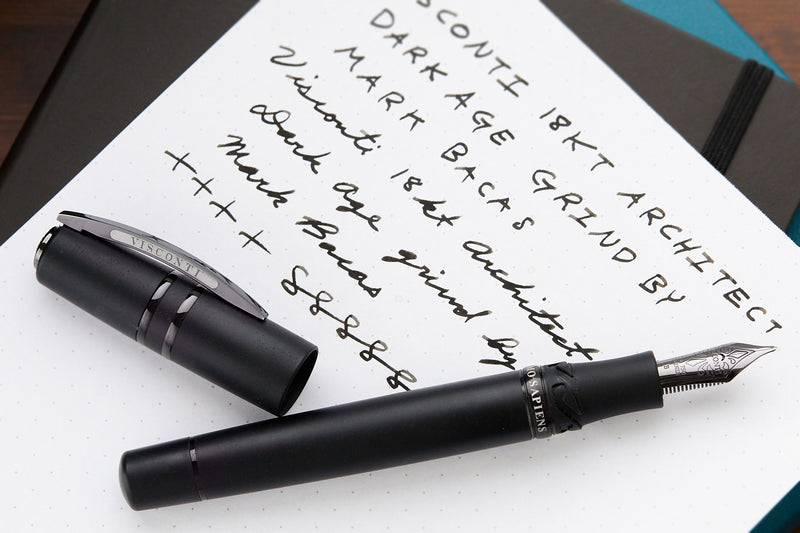 SCONTI 18KT ARCHITECT
DARK AGE GRIND BY
MARK BACAS
Visconti 18kt Architect
Dark age grind by
Mark Bacas
++++
VISCONTI
O SAPIENS